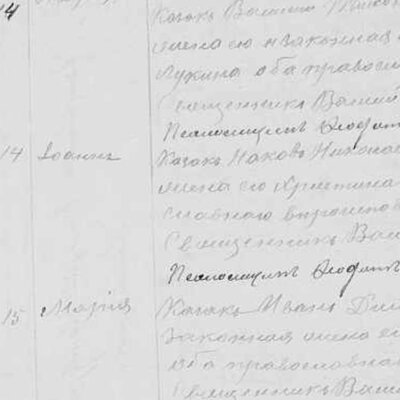 14
Казакъ Василій
жена его законная
Лукина оба правосл
Священникъ Васил
Псаломщикъ Ѳеофанъ
14 Іоаннъ Казакъ Яковъ Никола
жена его Христина
славнаго вѣроиспов
Священникъ Вас
Псаломщикъ Ѳеофанъ
15 Марія Казакъ Иванъ
законная жена е
оба православна
Священникъ Васил